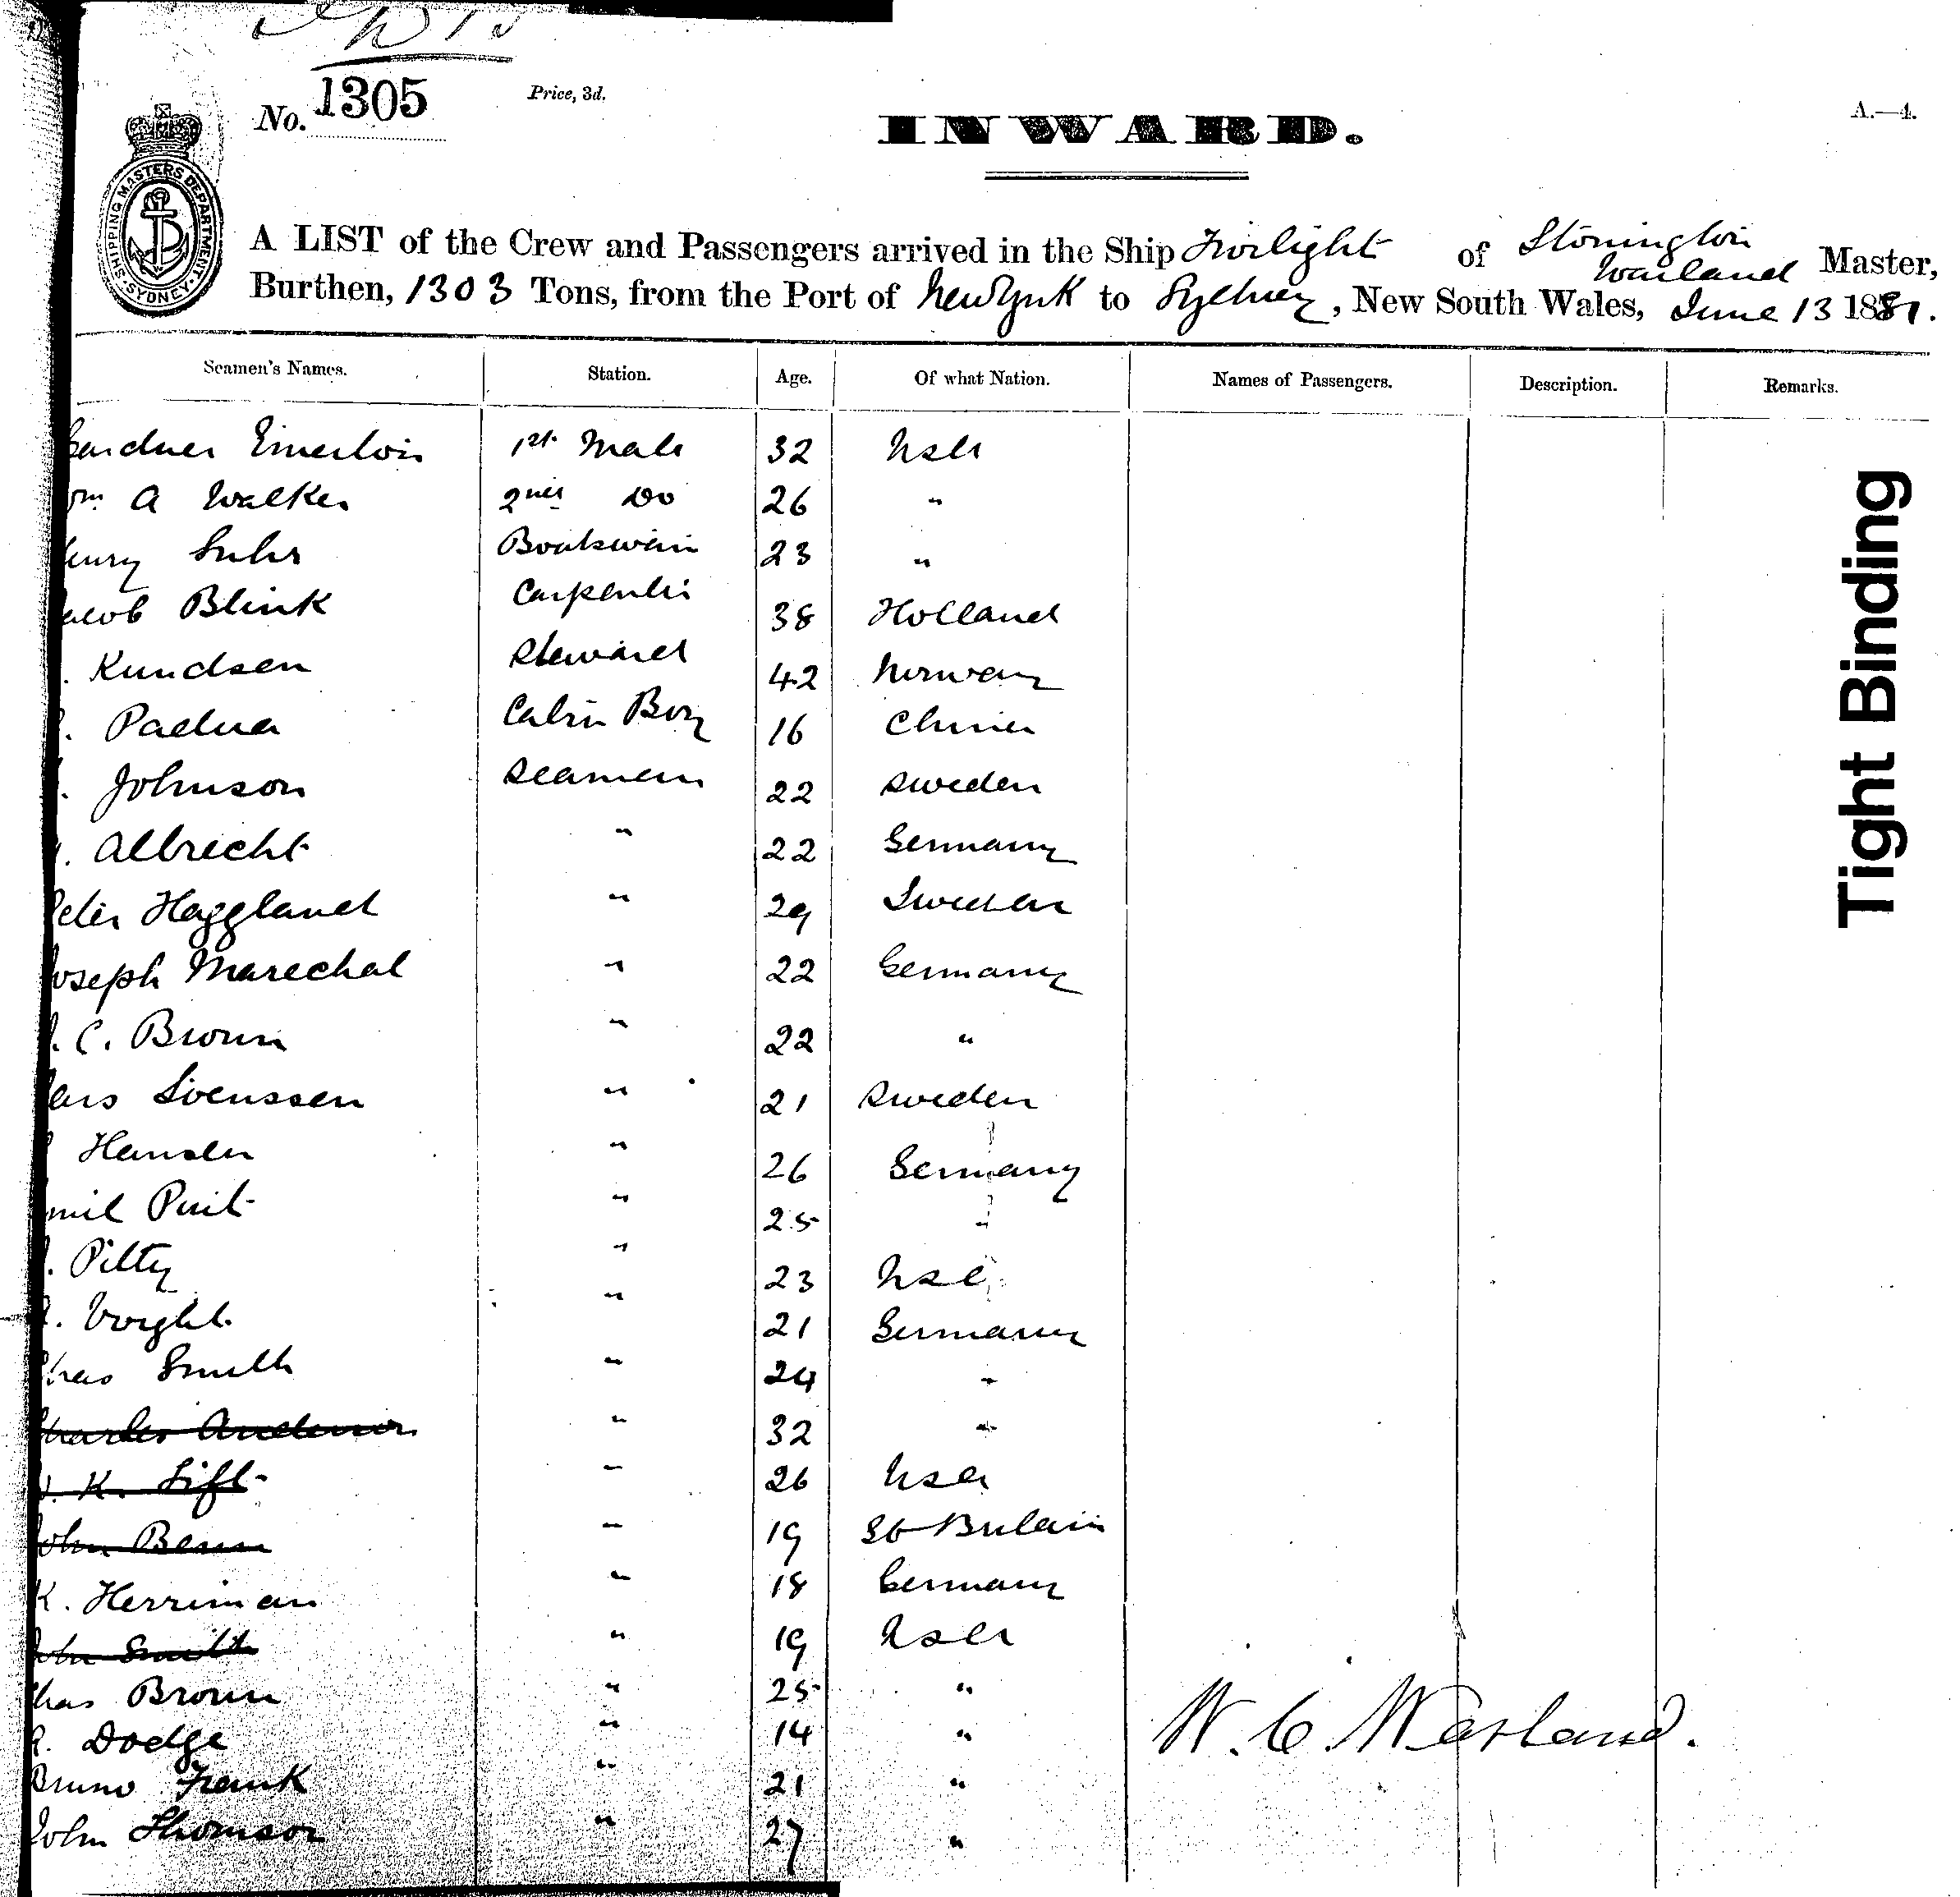 No. 1305
Price, 3d.
INWARD.
A.—4.
SHIPPING MASTERS DEPARTMENT SYDNEY
A LIST of the Crew and Passengers arrived in the Ship Twilight of Stonington
Warland Master,
Burthen, 1303 Tons, from the Port of New York to Sydney, New South Wales, June 13 1881.
Seamen's Names. Station. Age. Of what Nation. Names of Passengers. Description. Remarks.
Gardner Emerton 1st Mate 32 USA
Wm A Walker 2nd Do 26 "
Henry Suhr Boatswain 23 "
Jacob Blink Carpenter 38 Holland
Kundsen Steward 42 Norway
Padua Cabin Boy 16 China
Johnson Seaman 22 Sweden
Albrecht " 22 Germany
Peter Haggland " 29 Sweden
Joseph Marechal " 22 Germany
C. Brown " 22 "
Lars Svenssen " 21 Sweden
Hansen " 26 Germany
Emil " 25 "
Pitty " 23 USA
Voight " 21 Germany
Chas Smith " 24 "
Charles Anderson " 32 "
K. Sift " 26 USA
John " 19 Gt Britain
K. Herriman " 18 Germany
John Smith " 19 USA
Chas Brown " 25 "
Dodge " 14 "
Bruno Frank " 21 "
John Thomson " 27 "
W. C. Warland.
Tight Binding